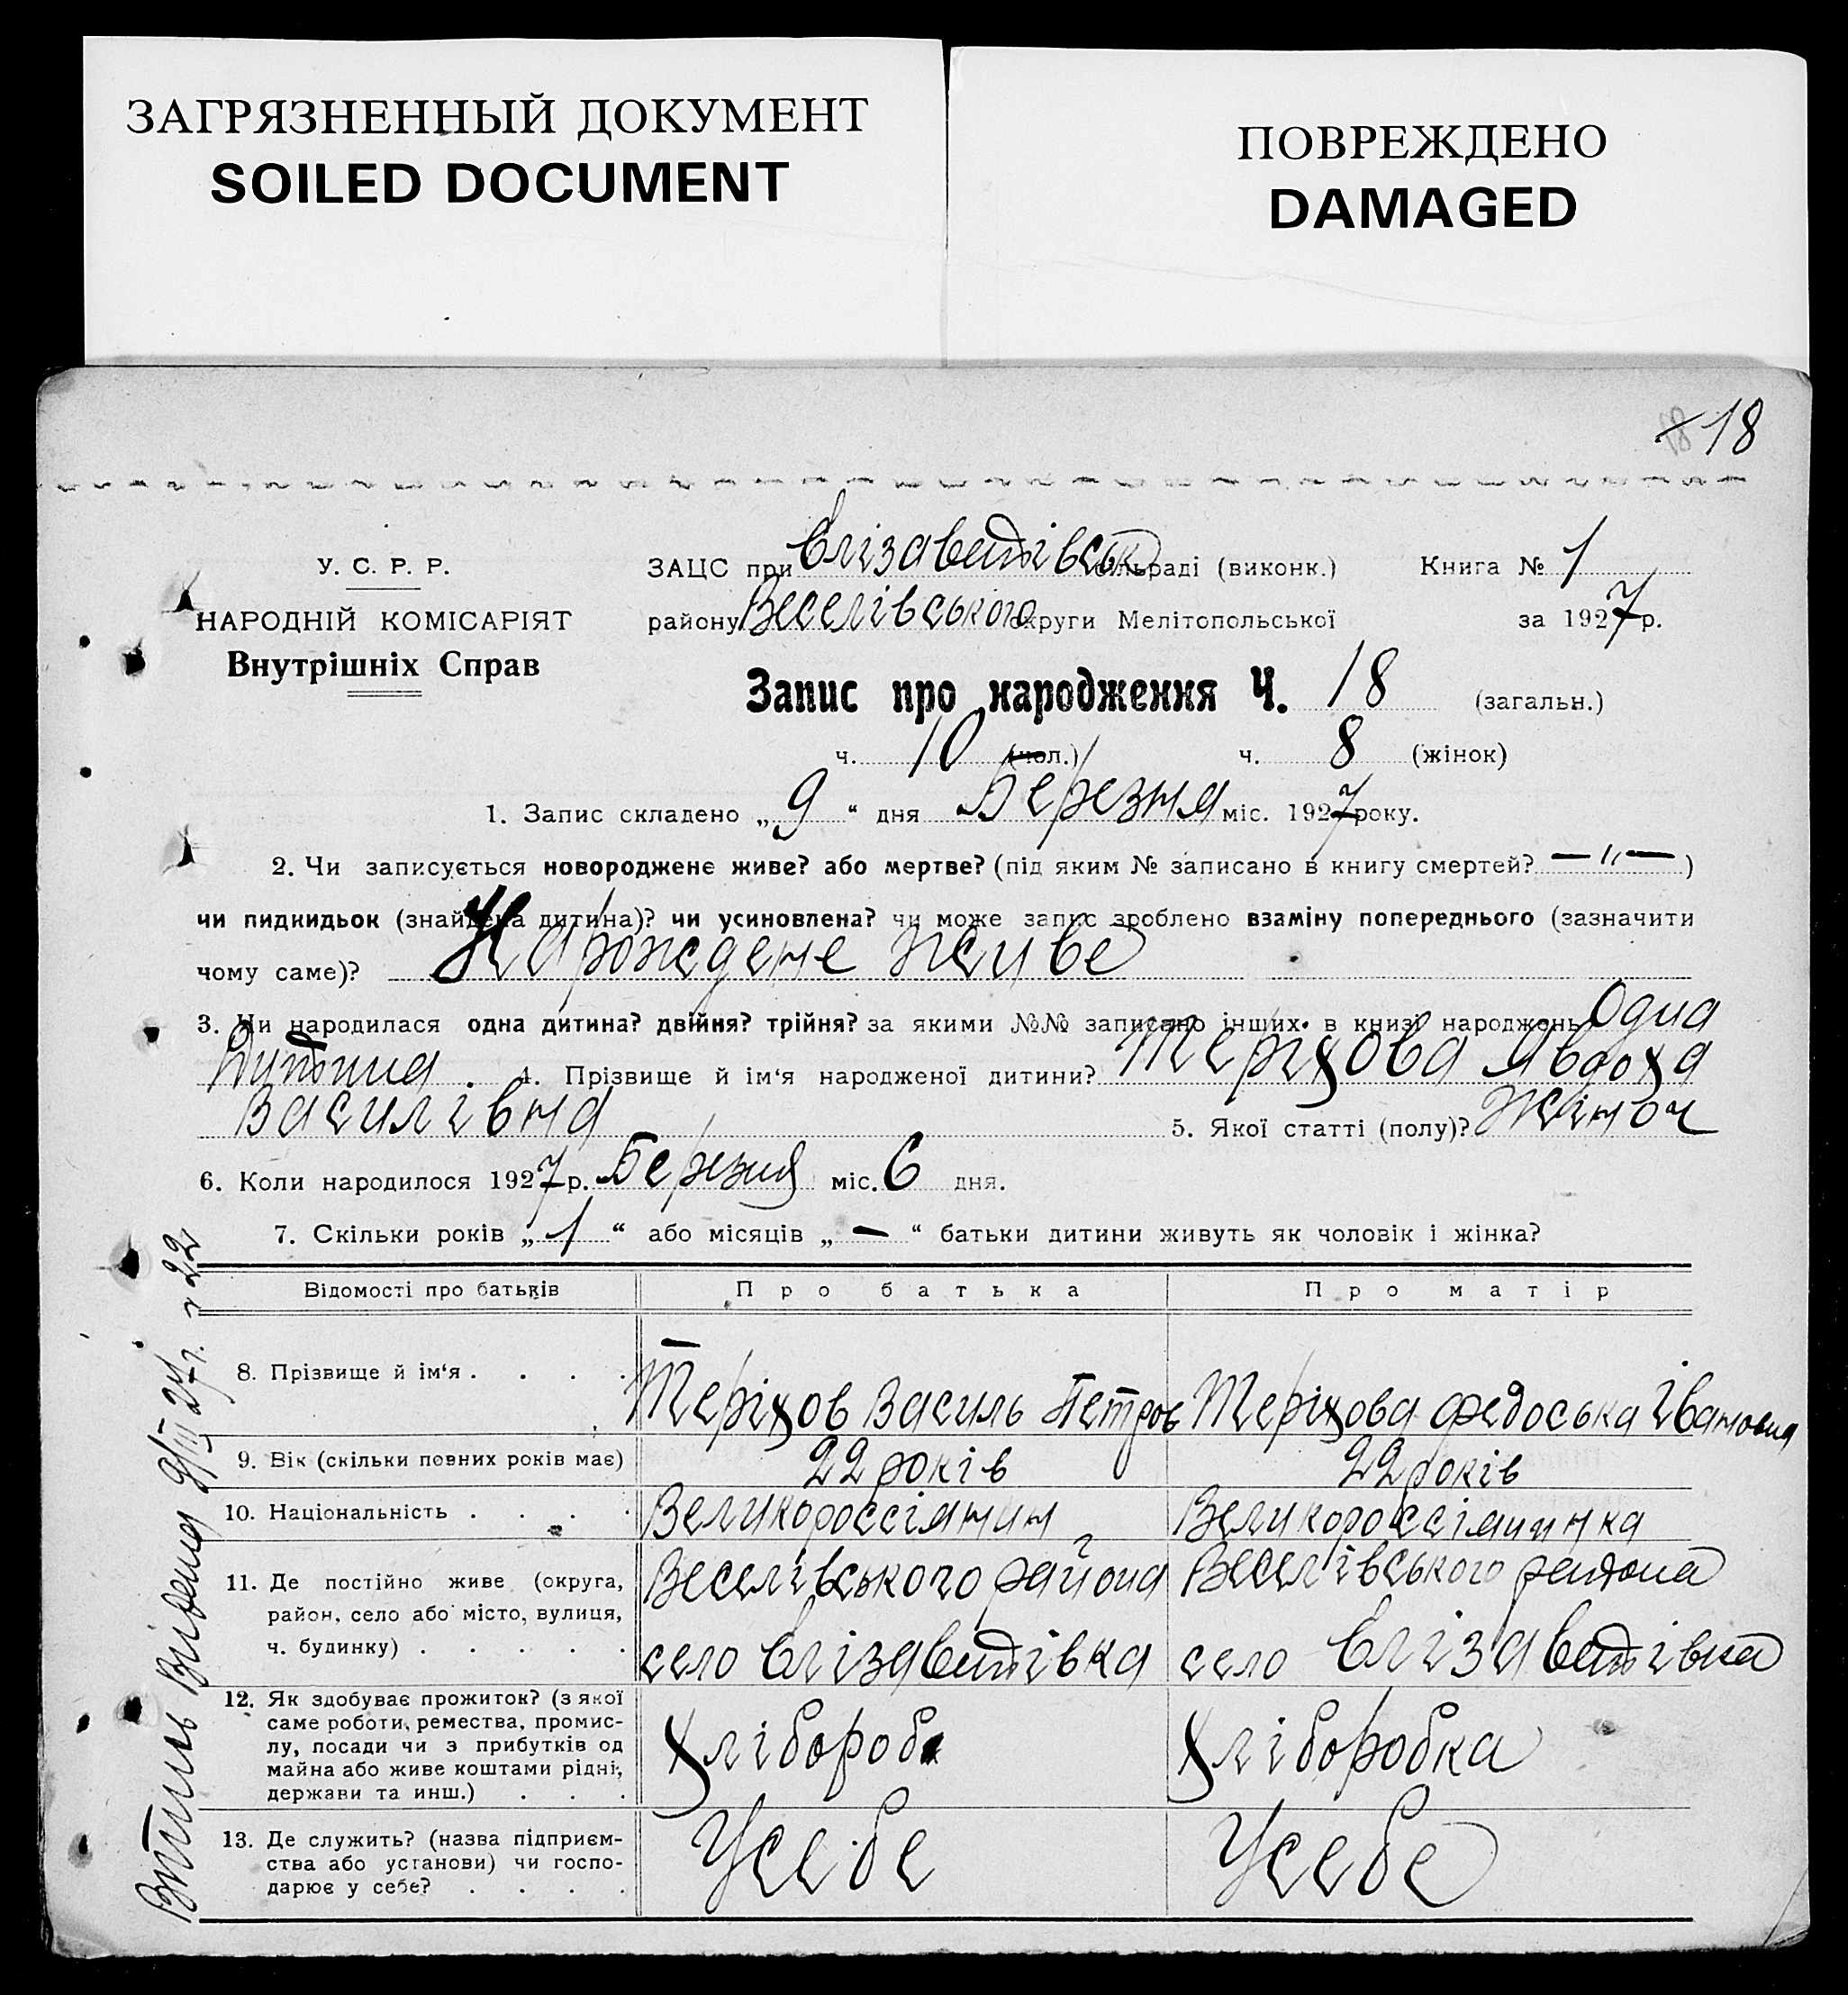 ЗАГРЯЗНЕННЫЙ ДОКУМЕНТ
SOILED DOCUMENT
ПОВРЕЖДЕНО
DAMAGED
18
У. С. Р. Р.
НАРОДНІЙ КОМІСАРІЯТ
Внутрішніх Справ
ЗАЦС при Єлізаветівськ сільраді (виконк.) Книга № 1
району Веселівського округи Мелітопольської за 1927 р.
Запис про народження Ч. 18 (загальн.)
ч. 10 (чол.) ч. 8 (жінок)
1. Запис складено „ 9 “ дня Березня міс. 1927 року.
2. Чи записується новороджене живе? або мертве? (під яким № записано в книгу смертей? — „ — )
чи пидкидьок (знайдена дитина)? чи усиновлена? чи може запис зроблено взаміну попереднього (зазначити
чому саме)? Нарождене живе
3. Чи народилася одна дитина? двійня? трійня? за якими №№ записано інших в книзі народжень Одна
Дитина. 4. Прізвище й ім‘я народженої дитини? Теріхова Явдоха
Василівна 5. Якої статті (полу)? Жіноч
6. Коли народилося 1927 р. Березня міс. 6 дня.
7. Скільки років „ 1 “ або місяців „ — “ батьки дитини живуть як чоловік і жінка?
Відомості про батьків Про батька Про матір
8. Прізвище й ім‘я . . . . Теріхов Василь Петров Теріхова Федоська Івановна
9. Вік (скільки повних років має) 22 років 22 років
10. Національність . . . . Великороссіянин Великороссіянинка
11. Де постійно живе (округа, Веселівського района Веселівського района
район, село або місто, вулиця,
ч. будинку) . . . . . село Єлізаветівка село Єлізаветівка
12. Як здобуває прожиток? (з якої
саме роботи, ремества, промис-
лу, посади чи з прибутків од Хлібороб Хліборобка
майна або живе коштами рідні,
держави та инш.) . . .
13. Де служить? (назва підприєм-
ства або установи) чи госпо- Усебе Усебе
дарює у себе? . . . .
9/III 27 г. 22